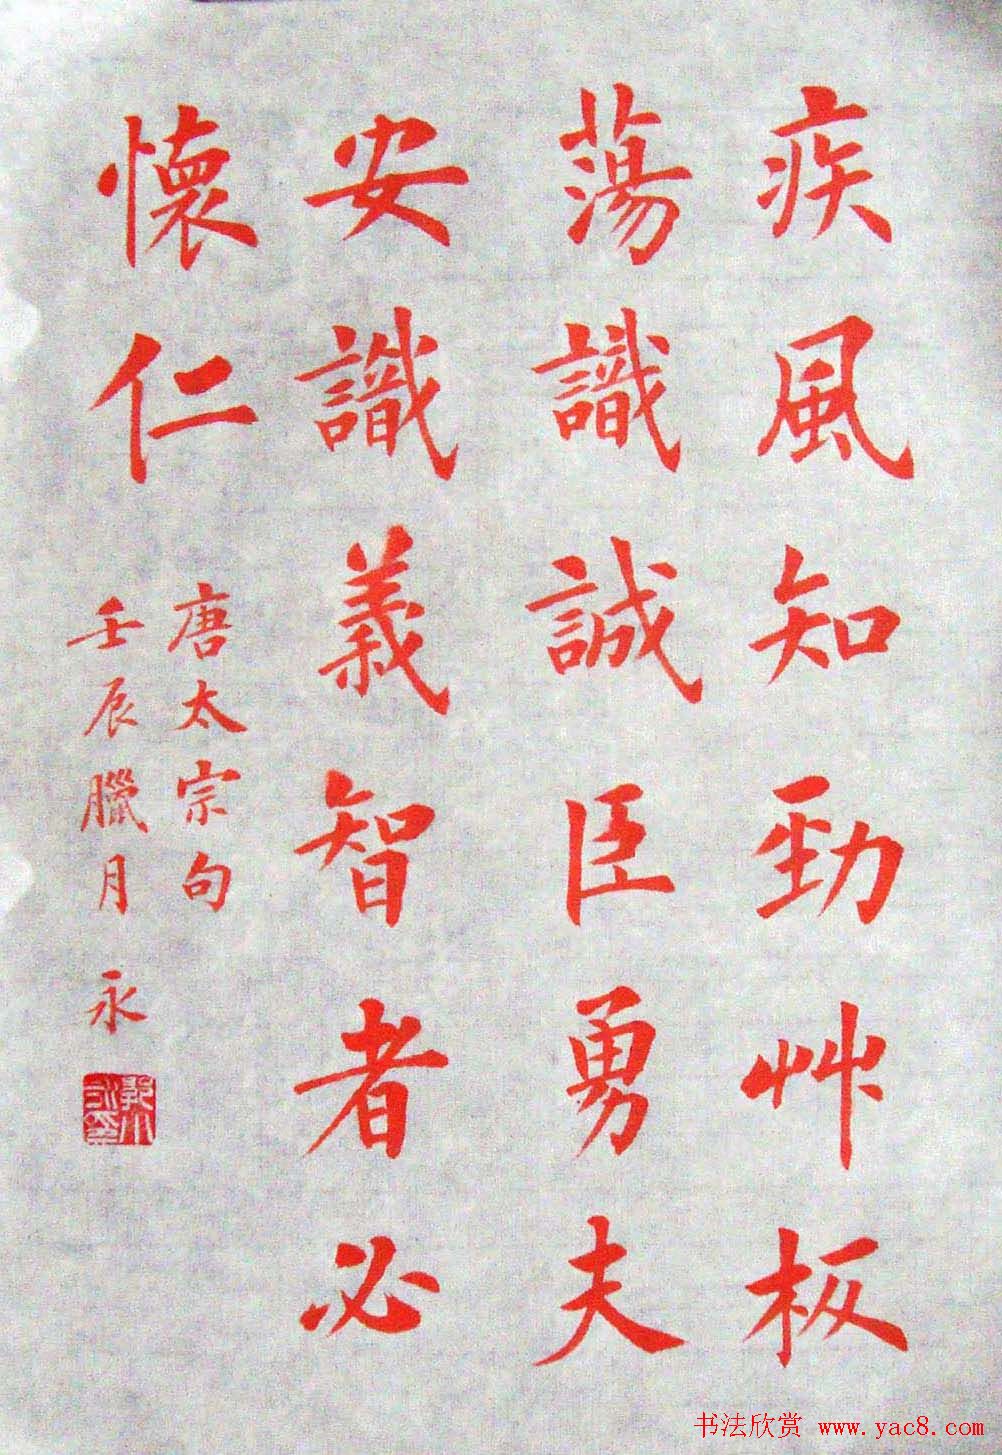 疾風知勁艸板
蕩識誠臣勇夫
安識義智者必
懷仁
唐太宗句
壬辰臘月 永
书法欣赏 www.yac8.com